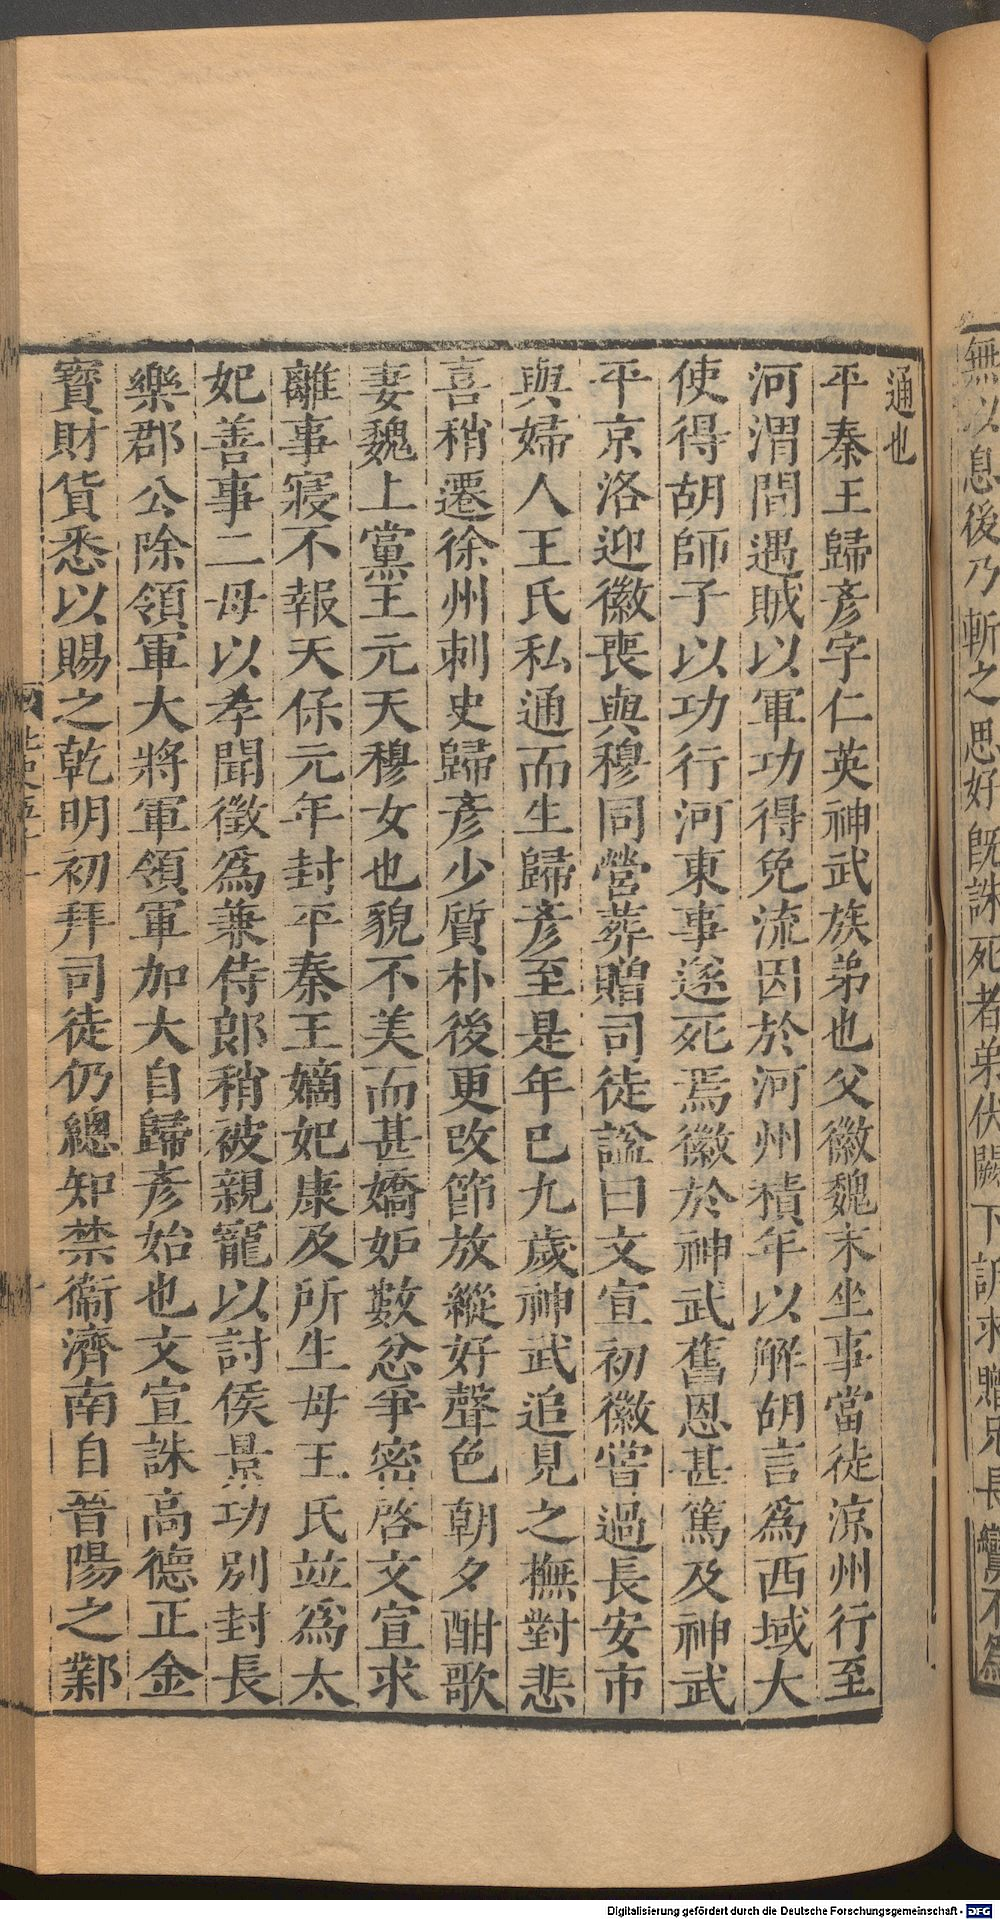 無以息後乃斬之思好既誅死者弟伏闕下訴求贈兄長鸞不爲
通也
平秦王歸彥字仁英神武族弟也父徽魏末坐事當徙涼州行至
河渭間遇賊以軍功得免流因於河州積年以解胡言爲西域大
使得胡師子以功行河東事遂死焉徽於神武舊恩甚篤及神武
平京洛迎徽喪與穆同營葬贈司徒諡曰文宣初徽嘗過長安市
與婦人王氏私通而生歸彥至是年已九歲神武追見之撫對悲
喜稍遷徐州刺史歸彥少質朴後更改節放縱好聲色朝夕酣歌
妻魏上黨王元天穆女也貌不美而甚嬌妒數忿爭密啓文宣求
離事寢不報天保元年封平秦王嫡妃康及所生母王氏並爲太
妃善事二母以孝聞徵爲兼侍郎稍被親寵以討侯景功別封長
樂郡公除領軍大將軍領軍加大自歸彥始也文宣誅高德正金
寶財貨悉以賜之乾明初拜司徒仍總知禁衞濟南自晉陽之鄴
Digitalisierung gefördert durch die Deutsche Forschungsgemeinschaft - DFG